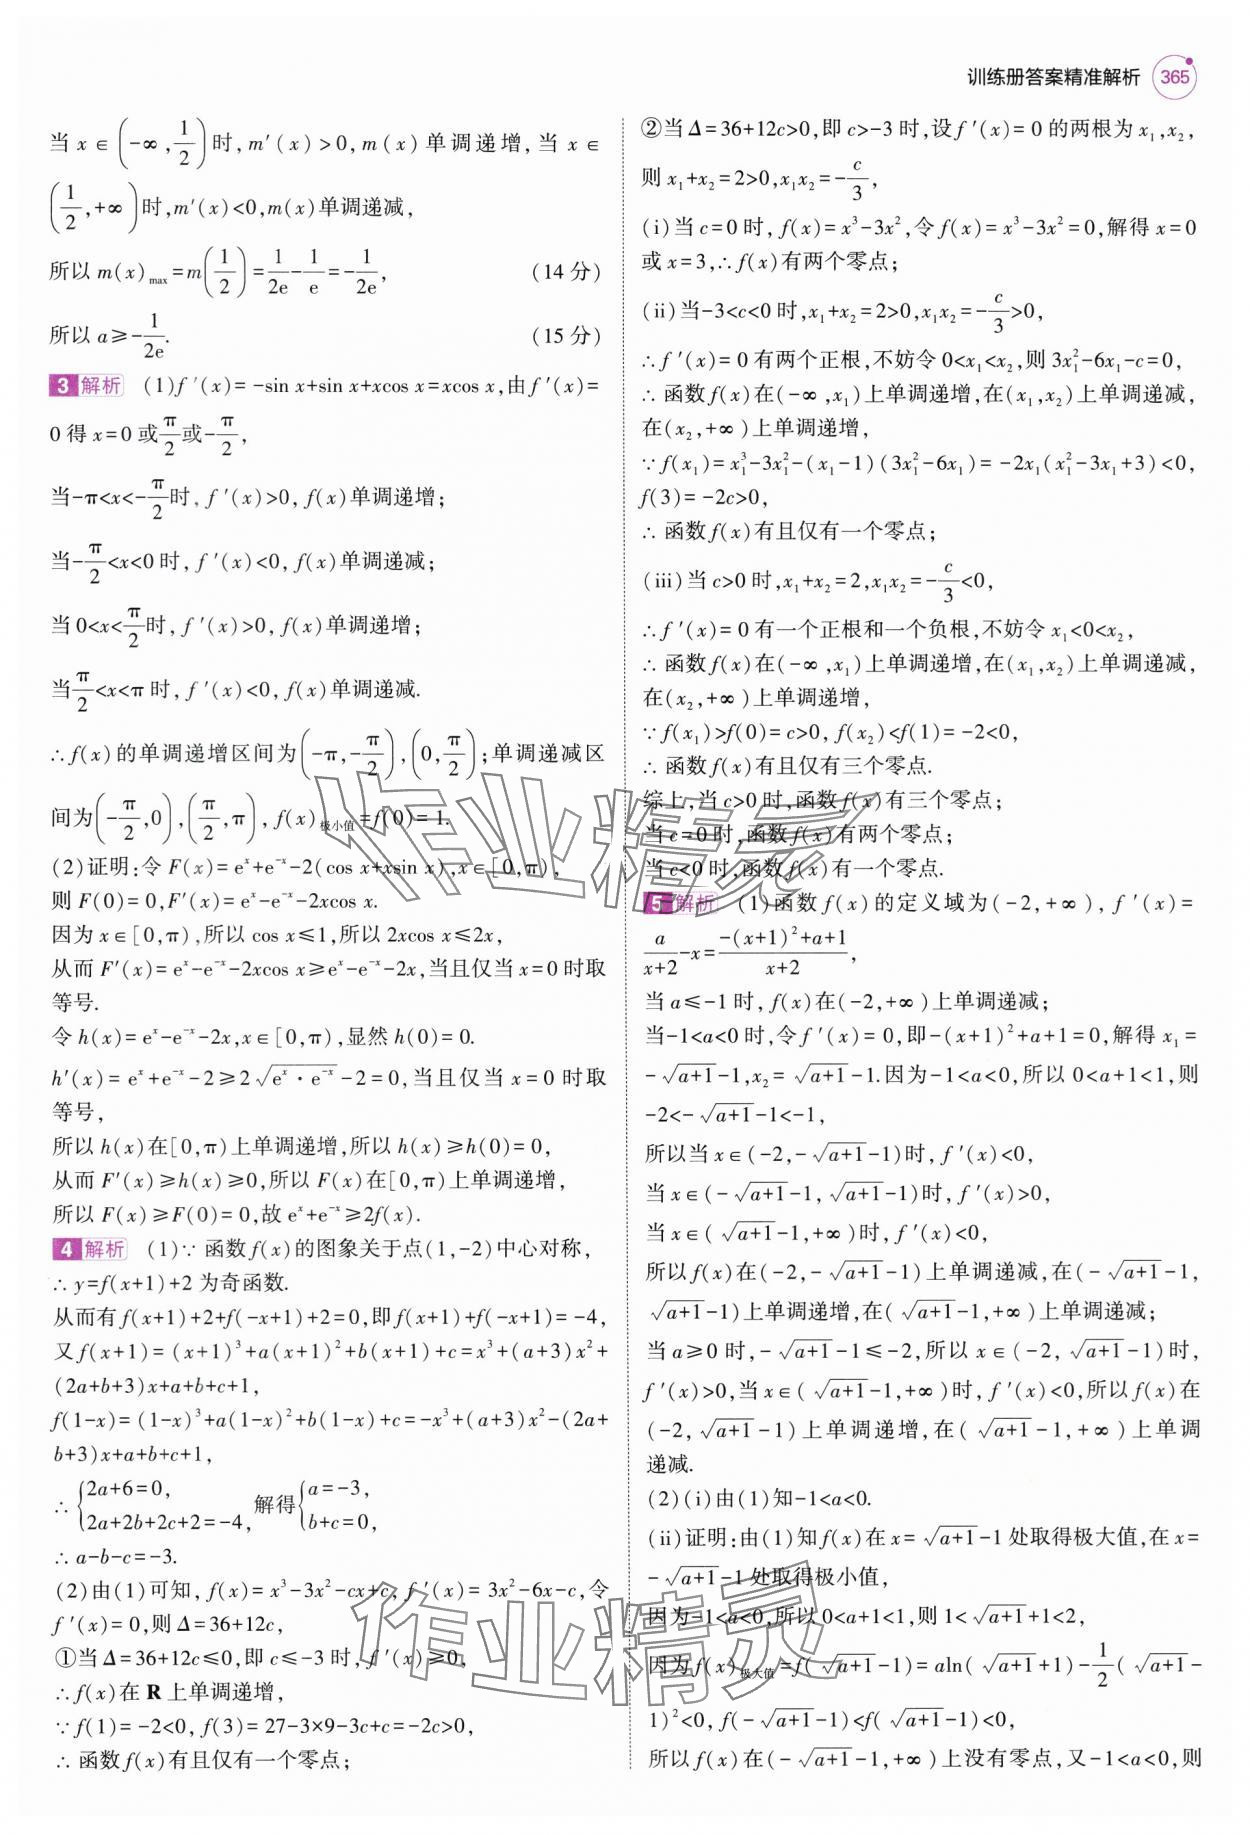 训练册答案精准解析 365
当 x∈(-∞,1/2)时,m′(x)>0,m(x)单调递增,当 x∈
(1/2,+∞)时,m′(x)<0,m(x)单调递减,
所以 m(x)max=m(1/2)=1/2e-1/e=-1/2e, (14 分)
所以 a≥-1/2e. (15 分)
3 解析 (1)f′(x)=-sin x+sin x+xcos x=xcos x,由 f′(x)=
0 得 x=0 或π/2或-π/2,
当-π<x<-π/2时,f′(x)>0,f(x)单调递增;
当-π/2<x<0 时,f′(x)<0,f(x)单调递减;
当 0<x<π/2时,f′(x)>0,f(x)单调递增;
当π/2<x<π 时,f′(x)<0,f(x)单调递减.
∴f(x)的单调递增区间为(-π,-π/2),(0,π/2);单调递减区
间为(-π/2,0),(π/2,π),f(x)极小值=f(0)=1.
(2)证明:令 F(x)=eˣ+e⁻ˣ-2(cos x+xsin x),x∈[0,π),
则 F(0)=0,F′(x)=eˣ-e⁻ˣ-2xcos x.
因为 x∈[0,π),所以 cos x≤1,所以 2xcos x≤2x,
从而 F′(x)=eˣ-e⁻ˣ-2xcos x≥eˣ-e⁻ˣ-2x,当且仅当 x=0 时取
等号.
令 h(x)=eˣ-e⁻ˣ-2x,x∈[0,π),显然 h(0)=0.
h′(x)=eˣ+e⁻ˣ-2≥2√(eˣ·e⁻ˣ)-2=0,当且仅当 x=0 时取
等号,
所以 h(x)在[0,π)上单调递增,所以 h(x)≥h(0)=0,
从而 F′(x)≥h(x)≥0,所以 F(x)在[0,π)上单调递增,
所以 F(x)≥F(0)=0,故 eˣ+e⁻ˣ≥2f(x).
4 解析 (1)∵ 函数 f(x)的图象关于点(1,-2)中心对称,
∴ y=f(x+1)+2 为奇函数.
从而有 f(x+1)+2+f(-x+1)+2=0,即 f(x+1)+f(-x+1)=-4,
又 f(x+1)=(x+1)³+a(x+1)²+b(x+1)+c=x³+(a+3)x²+
(2a+b+3)x+a+b+c+1,
f(1-x)=(1-x)³+a(1-x)²+b(1-x)+c=-x³+(a+3)x²-(2a+
b+3)x+a+b+c+1,
∴ {2a+6=0, 2a+2b+2c+2=-4, 解得{a=-3, b+c=0,
∴ a-b-c=-3.
(2)由(1)可知,f(x)=x³-3x²-cx+c,f′(x)=3x²-6x-c,令
f′(x)=0,则 Δ=36+12c,
①当 Δ=36+12c≤0,即 c≤-3 时,f′(x)≥0,
∴f(x)在 R 上单调递增,
∵f(1)=-2<0,f(3)=27-3×9-3c+c=-2c>0,
∴ 函数 f(x)有且仅有一个零点;
②当 Δ=36+12c>0,即 c>-3 时,设 f′(x)=0 的两根为 x₁,x₂,
则 x₁+x₂=2>0,x₁x₂=-c/3,
(i)当 c=0 时,f(x)=x³-3x²,令 f(x)=x³-3x²=0,解得 x=0
或 x=3,∴f(x)有两个零点;
(ii)当-3<c<0 时,x₁+x₂=2>0,x₁x₂=-c/3>0,
∴f′(x)=0 有两个正根,不妨令 0<x₁<x₂,则 3x₁²-6x₁-c=0,
∴ 函数 f(x)在(-∞,x₁)上单调递增,在(x₁,x₂)上单调递减,
在(x₂,+∞)上单调递增,
∵f(x₁)=x₁³-3x₁²-(x₁-1)(3x₁²-6x₁)=-2x₁(x₁²-3x₁+3)<0,
f(3)=-2c>0,
∴ 函数 f(x)有且仅有一个零点;
(iii)当 c>0 时,x₁+x₂=2,x₁x₂=-c/3<0,
∴f′(x)=0 有一个正根和一个负根,不妨令 x₁<0<x₂,
∴ 函数 f(x)在(-∞,x₁)上单调递增,在(x₁,x₂)上单调递减,
在(x₂,+∞)上单调递增,
∵f(x₁)>f(0)=c>0,f(x₂)<f(1)=-2<0,
∴ 函数 f(x)有且仅有三个零点.
综上,当 c>0 时,函数 f(x)有三个零点;
当 c=0 时,函数 f(x)有两个零点;
当 c<0 时,函数 f(x)有一个零点.
5 解析 (1)函数 f(x)的定义域为(-2,+∞),f′(x)=
a/(x+2)-x=(-(x+1)²+a+1)/(x+2),
当 a≤-1 时,f(x)在(-2,+∞)上单调递减;
当-1<a<0 时,令 f′(x)=0,即-(x+1)²+a+1=0,解得 x₁=
-√(a+1)-1,x₂=√(a+1)-1.因为-1<a<0,所以 0<a+1<1,则
-2<-√(a+1)-1<-1,
所以当 x∈(-2,-√(a+1)-1)时,f′(x)<0,
当 x∈(-√(a+1)-1,√(a+1)-1)时,f′(x)>0,
当 x∈(√(a+1)-1,+∞)时,f′(x)<0,
所以 f(x)在(-2,-√(a+1)-1)上单调递减,在(-√(a+1)-1,
√(a+1)-1)上单调递增,在(√(a+1)-1,+∞)上单调递减;
当 a≥0 时,-√(a+1)-1≤-2,所以 x∈(-2,√(a+1)-1)时,
f′(x)>0,当 x∈(√(a+1)-1,+∞)时,f′(x)<0,所以 f(x)在
(-2,√(a+1)-1)上单调递增,在(√(a+1)-1,+∞)上单调
递减.
(2)(i)由(1)知-1<a<0.
(ii)证明:由(1)知 f(x)在 x=√(a+1)-1 处取得极大值,在 x=
-√(a+1)-1 处取得极小值,
因为-1<a<0,所以 0<a+1<1,则 1<√(a+1)+1<2,
因为 f(x)极大值=f(√(a+1)-1)=aln(√(a+1)+1)-1/2(√(a+1)-
1)²<0,f(-√(a+1)-1)<f(√(a+1)-1)<0,
所以 f(x)在(-√(a+1)-1,+∞)上没有零点,又-1<a<0,则
作业精灵
作业精灵